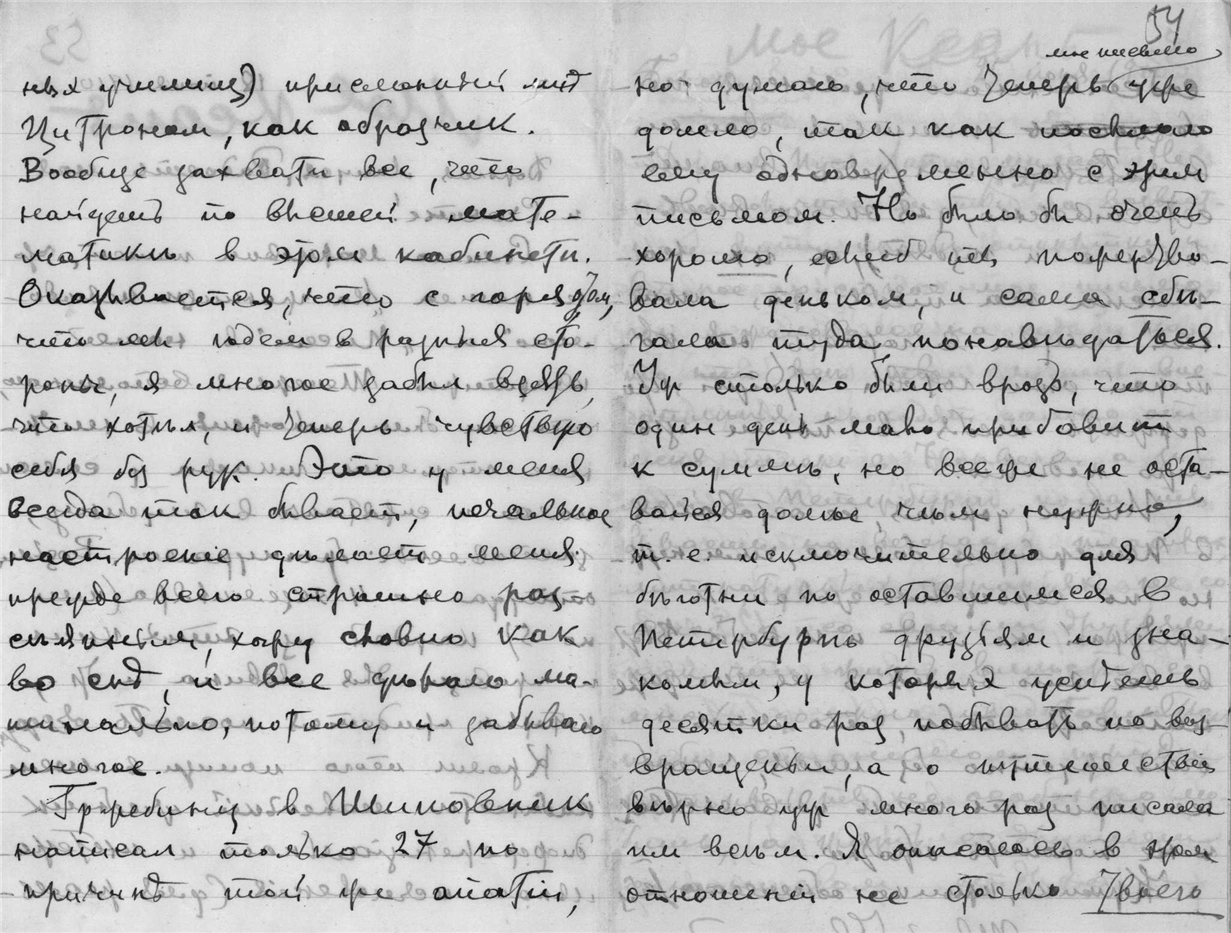 ных училищ) присланный
Цитроном, как образчик.
Вообще захвати все, что
найдешь по высшей мате-
матикѣ в этом кабинетѣ.
Оказывается, что с горя, 
что мы ѣдем в разныя сто-
роны, я многое забыл взять,
что хотѣл, и теперь чувствую
себя без рук. Это у меня
всегда так бывает, печальное
настроеніе дѣлает меня
прежде всего страшно раз-
сѣянным, хожу словно как
во снѣ, и все дѣлаю ма-
шинально, потому и забываю
многое.
Гржебину в Шиповник
написал только 27 по
причинѣ той же апатіи,
54
мое письмо
но думаю, что теперь уже
дошло, так как посылаю
ему одновременно с этим
письмом. Но было бы очень
хорошо, еслиб ты пожертво-
вала деньком, и сама сбѣ-
гала туда понавѣдаться.
Уж столько были врозь, что
один день мало прибавит
к суммѣ, но все же не оста-
вайся долѣе, чѣм нужно,
т. е. исключительно для
бѣготни по оставшимся в
Петербургѣ друзьям и зна-
комым, у которых успѣешь
десятки раз побывать по воз-
вращеньи, а о путешествіи
вѣрно уж много раз писала
им всѣм. Я опасаюсь в этом
отношеніи не столько твоего